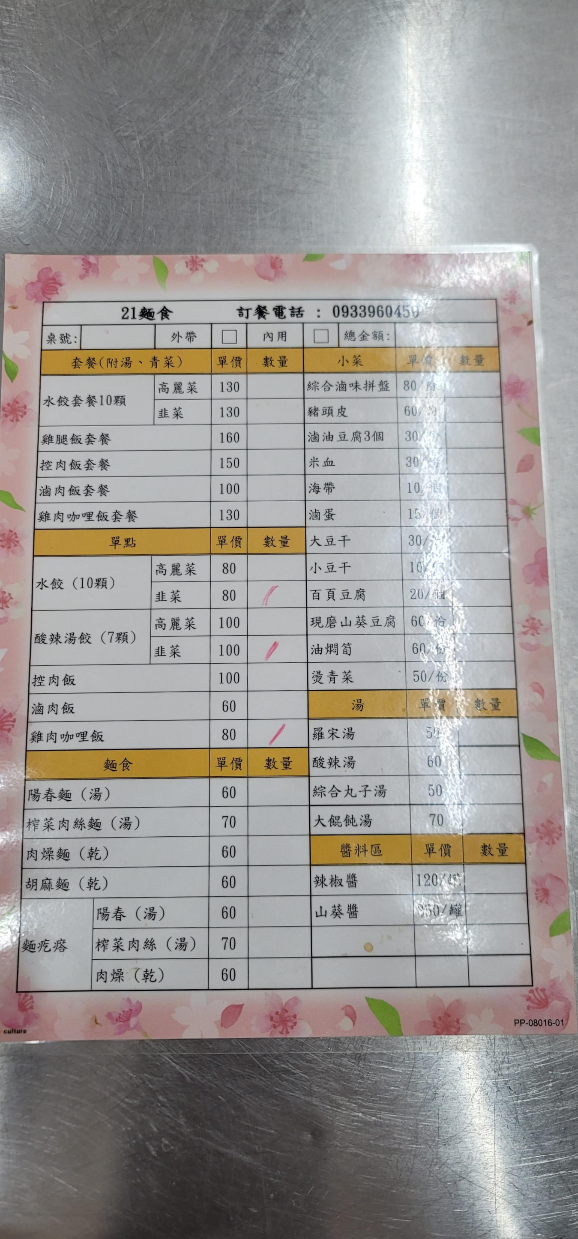 21麵食 訂餐電話 : 0933960450
桌號: 外帶 內用 總金額:
套餐(附湯、青菜) 單價 數量
水餃套餐10顆 高麗菜 130
韭菜 130
雞腿飯套餐 160
控肉飯套餐 150
滷肉飯套餐 100
雞肉咖哩飯套餐 130
單點 單價 數量
水餃 (10顆) 高麗菜 80
韭菜 80
酸辣湯餃 (7顆) 高麗菜 100
韭菜 100
控肉飯 100
滷肉飯 60
雞肉咖哩飯 80
麵食 單價 數量
陽春麵 (湯) 60
榨菜肉絲麵 (湯) 70
肉燥麵 (乾) 60
胡麻麵 (乾) 60
麵疙瘩 陽春 (湯) 60
榨菜肉絲 (湯) 70
肉燥 (乾) 60
小菜 單價 數量
綜合滷味拼盤 80
豬頭皮 60
滷油豆腐3個 30
米血 30
海帶 10
滷蛋 15
大豆干 30/
小豆干 10
百頁豆腐 20/
現磨山葵豆腐 60/份
油燜筍 60/份
燙青菜 50/份
湯 單價 數量
羅宋湯
酸辣湯 60
綜合丸子湯 50
大餛飩湯 70
醬料區 單價 數量
辣椒醬 120/罐
山葵醬 /罐
culture
PP-08016-01